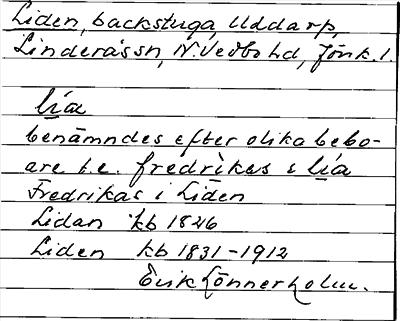 Liden, backstuga, Uddarp,
Linderåssn, N. Vedbo hd, Jönk. l.
lía
benämndes efter olika bebo-
are t.e. fredrìkas i lía
Fredrikas i Liden
Lidan kb 1826
Liden kb 1831-1912
Erik Lönnerholm.